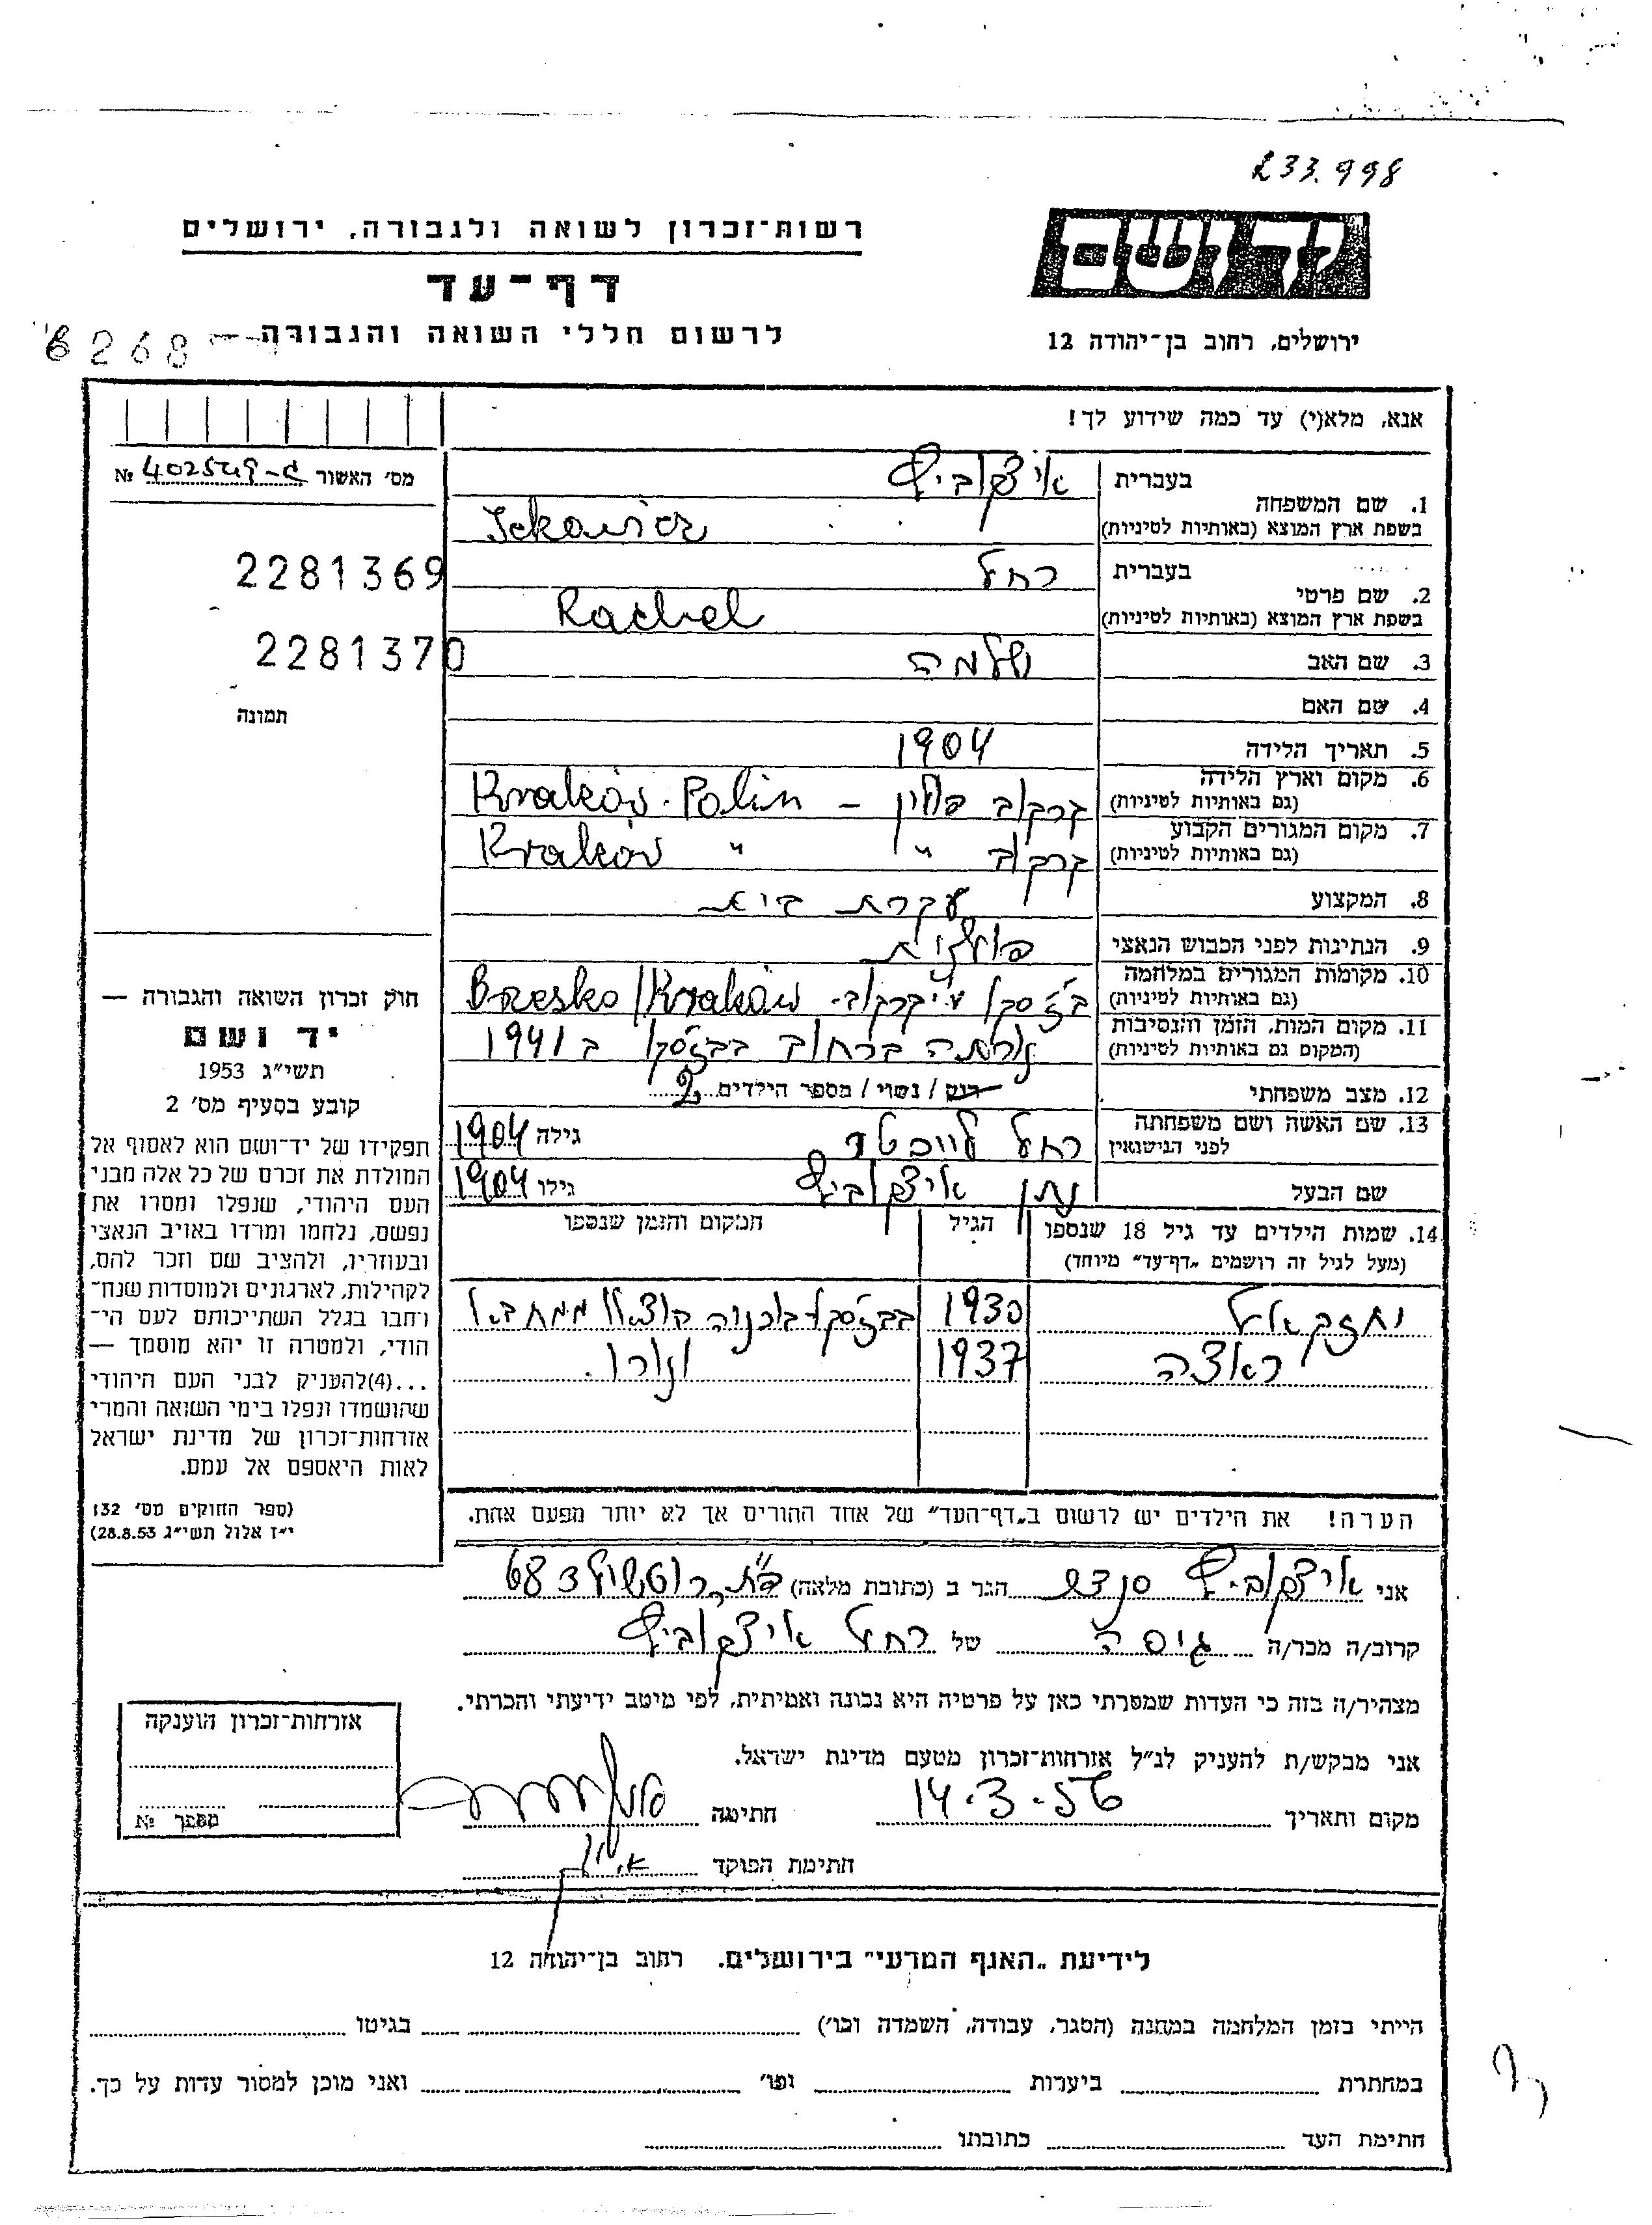 233.998
רשות־זכרון לשואה ולגבורה, ירושלים
דף־עד
לרשום חללי השואה והגבורה
6268
יד ושם
ירושלים, רחוב בן־יהודה 12
אנא, מלא(י) עד כמה שידוע לך!
מס׳ האשור № 402549-ג
2281369
2281370
תמונה
1. שם המשפחה
בעברית איצקוביץ
בשפת ארץ המוצא (באותיות לטיניות) Ickowicz
2. שם פרטי
בעברית רחל
בשפת ארץ המוצא (באותיות לטיניות) Rachel
3. שם האב שלמה
4. שם האם
5. תאריך הלידה 1904
6. מקום וארץ הלידה (גם באותיות לטיניות) קרקוב פולין – Kraków. Polin
7. מקום המגורים הקבוע (גם באותיות לטיניות) קרקוב " " Kraków
8. המקצוע עקרת בית
9. הנתינות לפני הכבוש הנאצי פולנית
10. מקומות המגורים במלחמה (גם באותיות לטיניות) בז'סקו ע"י קרקוב. Bresko/Kraków
11. מקום המות, הזמן והנסיבות (המקום גם באותיות לטיניות) נורתה ברחוב בבז'סקו ב 1941
12. מצב משפחתי רווק / נשוי / מספר הילדים 2
13. שם האשה ושם משפחתה לפני הנישואין רחל גילה 1904
שם הבעל נתן איצקוביץ גילו 1904
14. שמות הילדים עד גיל 18 שנספו הגיל המקום והזמן שנספו
(מעל לגיל זה רושמים „דף־עד" מיוחד)
יחזקאל 1930 הוצאו ממחבוא
ראצה 1937 ונורו.
הערה! את הילדים יש לרשום ב„דף־העד" של אחד ההורים אך לא יותר מפעם אחת.
חוק זכרון השואה והגבורה —
יד ושם
תשי״ג 1953
קובע בסעיף מס׳ 2
תפקידו של יד־ושם הוא לאסוף אל
המולדת את זכרם של כל אלה מבני
העם היהודי, שנפלו ומסרו את
נפשם, נלחמו ומרדו באויב הנאצי
ובעוזריו, ולהציב שם וזכר להם,
לקהילות, לארגונים ולמוסדות שנח־
רחבו בגלל השתייכותם לעם הי־
הודי, ולמטרה זו יהא מוסמך —
...(4)להעניק לבני העם היהודי
שהושמדו ונפלו בימי השואה והמרי
אזרחות־זכרון של מדינת ישראל
לאות היאספם אל עמם.
(ספר החוקים מס׳ 132
י״ז אלול תשי״ג 28.8.53)
אני איצקוביץ סנדר הגר ב (כתובת מלאה) פ"ת רוטשילד 68
קרוב/ה מכר/ה גיסה של רחל איצקוביץ
מצהיר/ה בזה כי העדות שמסרתי כאן על פרטיה היא נכונה ואמיתית, לפי מיטב ידיעתי והכרתי.
אני מבקש/ת להעניק לנ״ל אזרחות־זכרון מטעם מדינת ישראל.
מקום ותאריך 14.3.56 חתימה
חתימת הפוקד
אזרחות־זכרון הוענקה
מספר №
לידיעת „האגף המדעי" בירושלים. רחוב בן־יהודה 12
הייתי בזמן המלחמה במחנה (הסגר, עבודה, השמדה וכו׳) בגיטו
במחתרת ביערות וכו׳ ואני מוכן למסור עדות על כך.
חתימת העד כתובתו